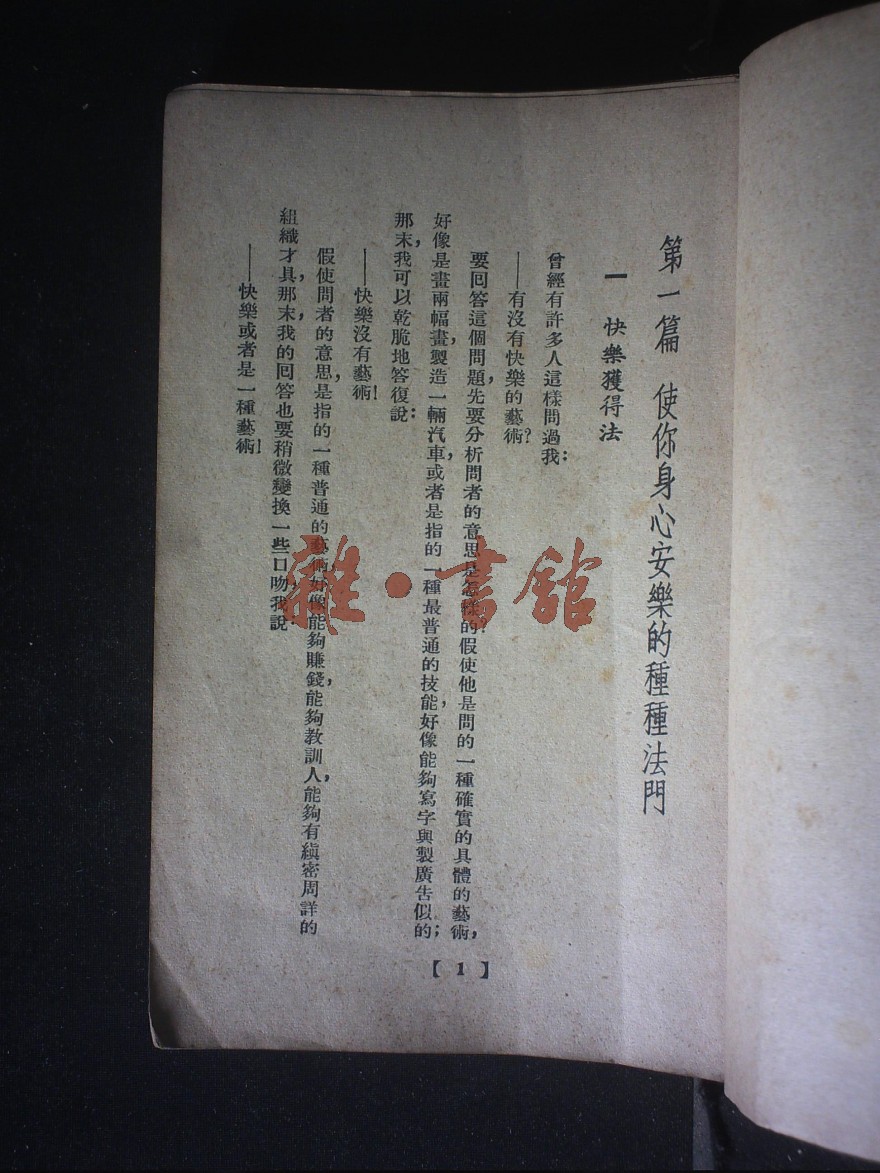 第一篇 使你身心安樂的種種法門
一 快樂獲得法
曾經有許多人這樣問過我：
——有沒有快樂的藝術？
要囘答這個問題，先要分析問者的意思是怎樣的？假使他是問的一種確實的具體的藝術，
好像是畫兩幅畫，製造一輛汽車，或者是指的一種最普通的技能，好像能夠寫字與製廣告似的；
那末，我可以乾脆地答復說：
——快樂沒有藝術！
假使問者的意思，是指的一種普通的藝術，好像能夠賺錢，能夠教訓人，能夠有縝密周詳的
組織才具，那末，我的囘答也要稍微變換一些口吻，我說：
——快樂或者是一種藝術！
【1】
雜·書館